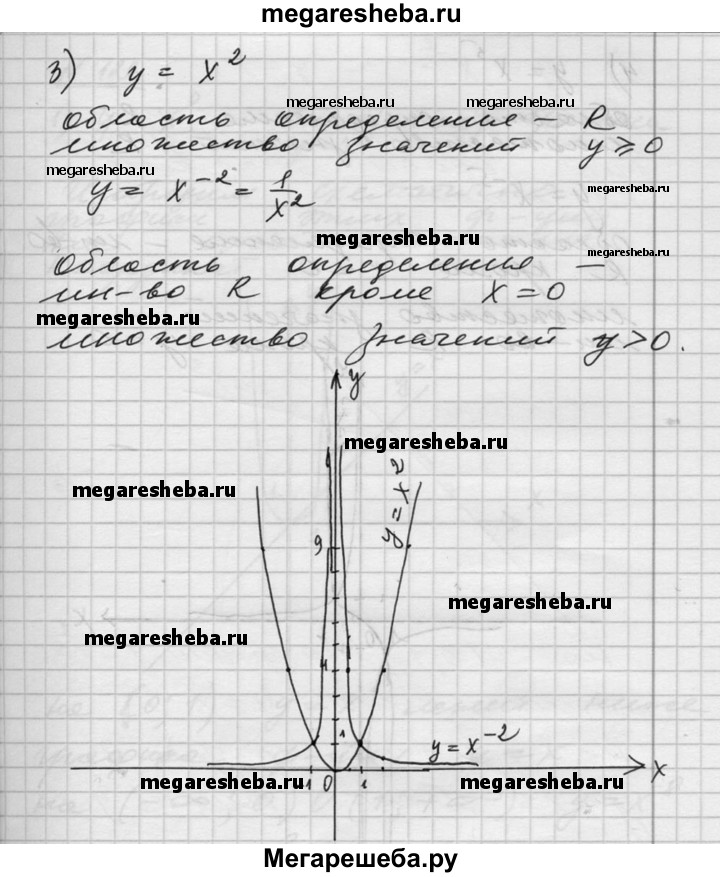 megaresheba.ru
3) y = x²
megaresheba.ru megaresheba.ru
область определения – R
множество значений y ⩾ 0
megaresheba.ru
y = x⁻² = 1/x²
megaresheba.ru
megaresheba.ru
megaresheba.ru
область определения –
мн-во R кроме x = 0
megaresheba.ru
множество значений y > 0.
y
megaresheba.ru
y = x²
megaresheba.ru
9
megaresheba.ru
megaresheba.ru
4
1
y = x⁻²
-1 0 1 x
megaresheba.ru megaresheba.ru
Мегарешеба.ру